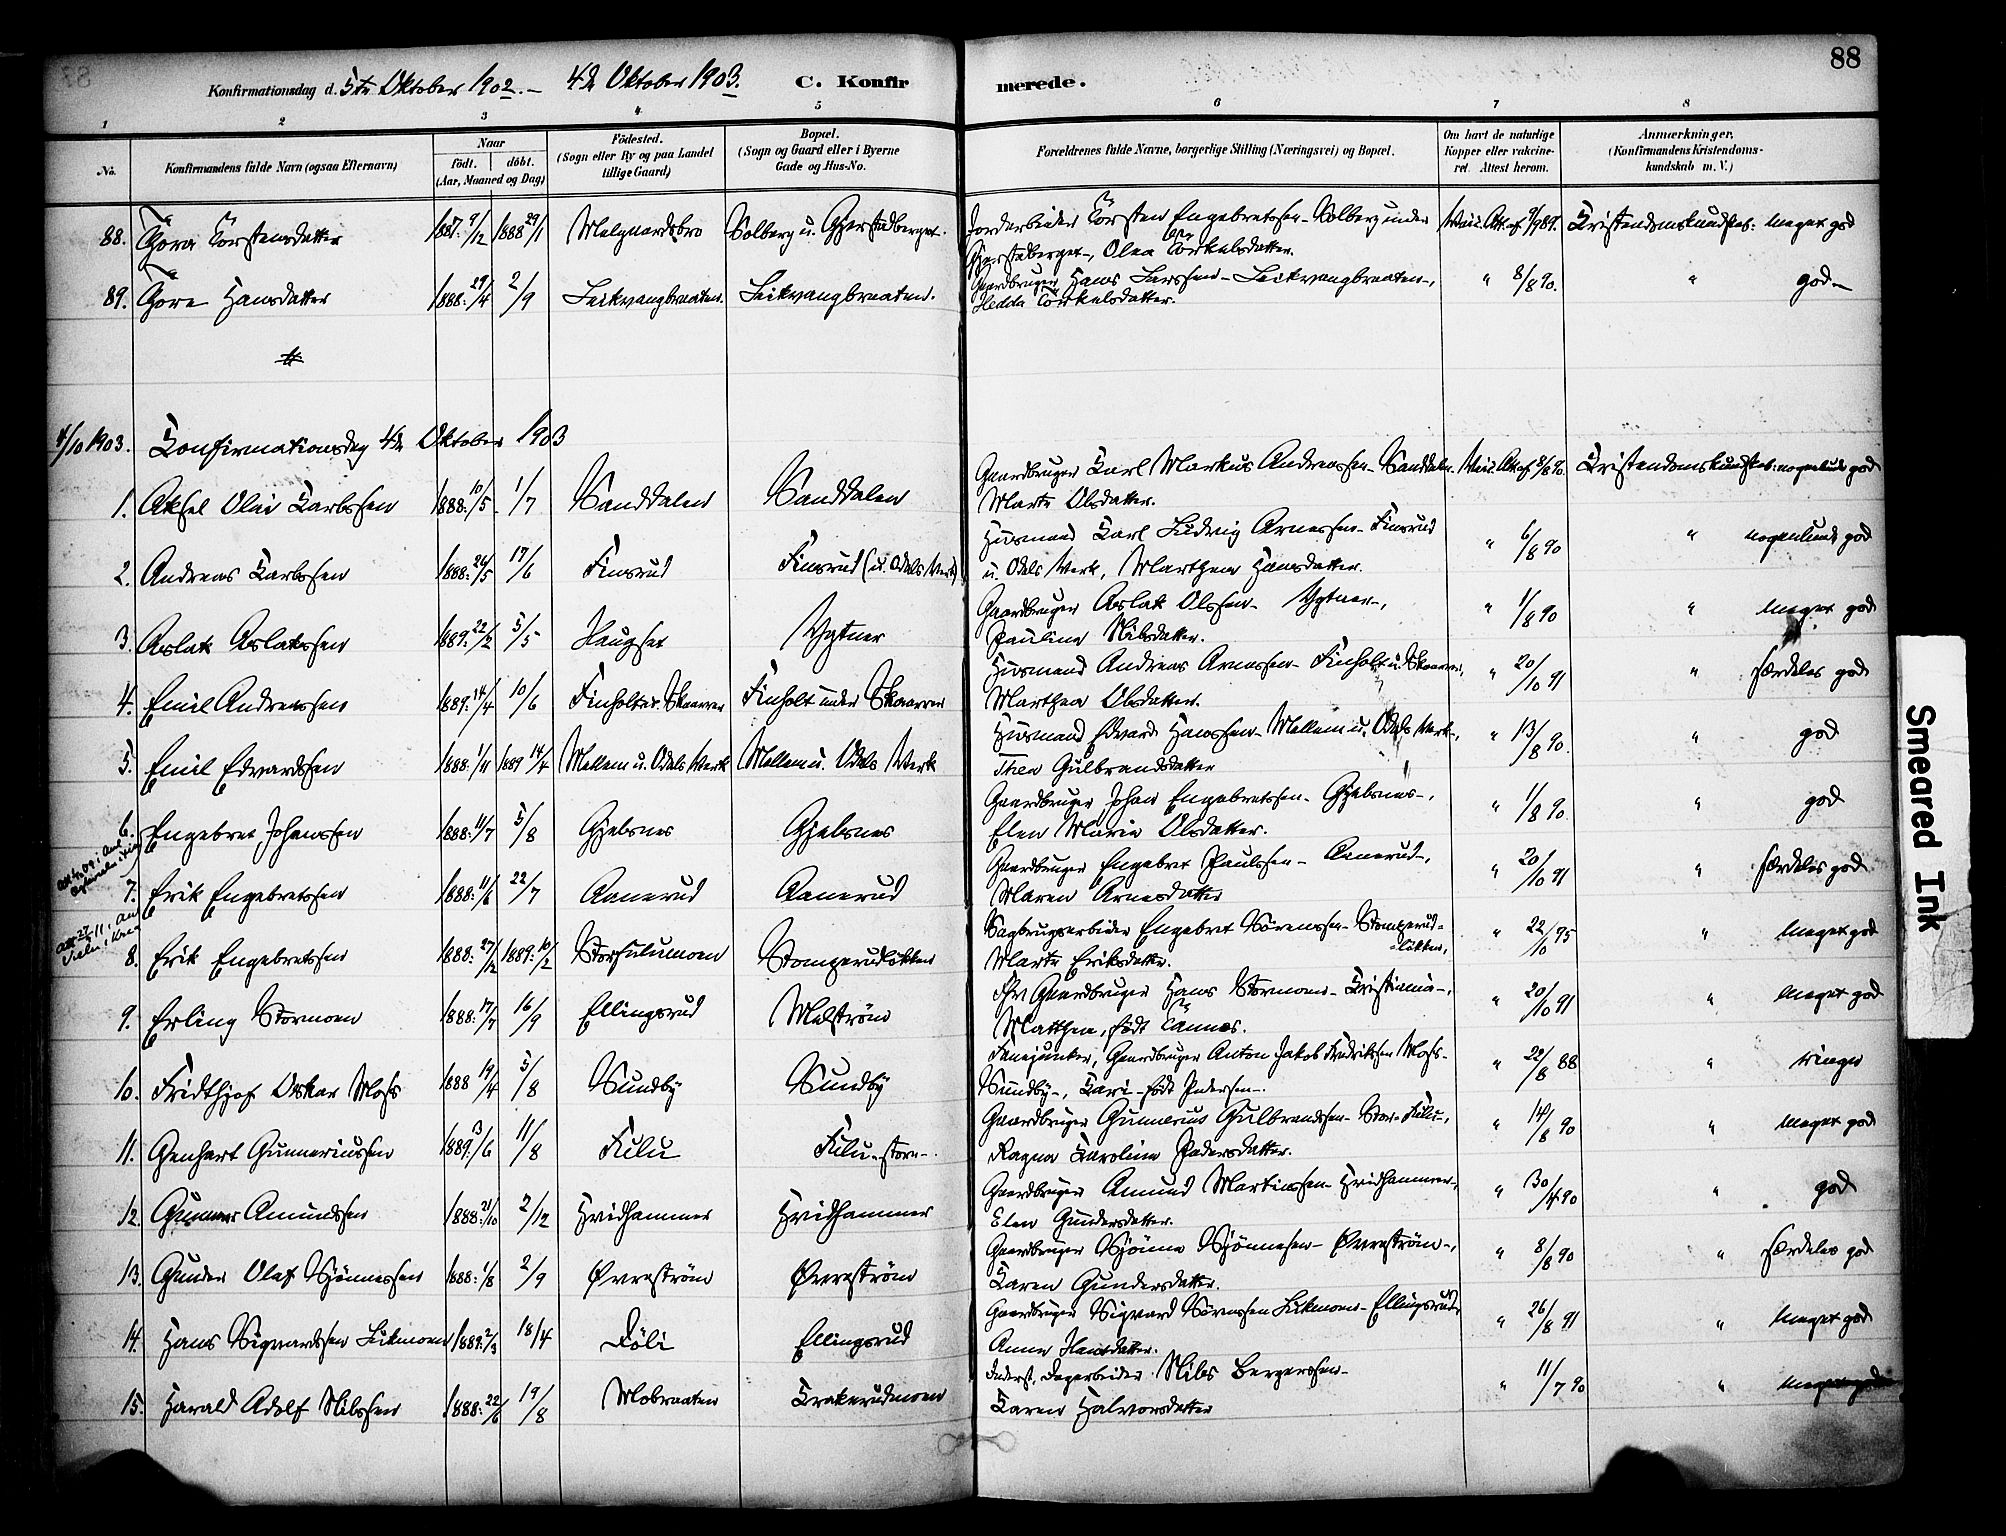 88
Konfirmationsdag d. 5te Oktober 1902. – 4de Oktober 1903. C. Konfirmerede.
1 2 3 4 5 6 7 8
No. Konfirmandens fulde Navn (ogsaa Efternavn) Naar födt. döbt. (Aar, Maaned og Dag) Födested. (Sogn eller By og paa Landet tillige Gaard) Bopæl. (Sogn og Gaard eller i Byerne Gade og Hus-No. Forældrenes fulde Navne, borgerlige Stilling (Næringsvei) og Bopæl. Om havt de naturlige Kopper eller vakcineret. Attest herom. Anmærkninger. (Konfirmandens Kristendomskundskab m. V.)
88. Thora Torstensdatter 1887. 9/12 1888 29/1 Melgaardsbro Solberg u. Gjerstadberget. Jordarbeider Torsten Engebretssen – Solberg under Gjerstadberget –, Olea Torkelsdatter. Vacc. Att. af 9/9 89. Kristendomskundskab: meget god
89. Thora Hansdatter 1888. 29/4 2/9 Leikvangbraaten. Leikvangbraaten. Gaardbruger Hans Larssen – Leikvangbraaten –, Hedda Torkelsdatter. " 8/8 90. " god –
4/10 1903. Confirmationsdag 4de Oktober 1903
1. Aksel Olai Karlssen 1888. 10/5 1/7 Sanddalen Sanddalen Gaardbruger Karl Markus Andreassen – Sanddalen. Marte Olsdatter. Vacc. Att. af 8/8 90. Kristendomskundskab: nogenlunde god
2. Andreas Karlssen 1888. 24/5 17/6 Finsrud Finsrud (u. Odals Verk) Husmand Karl Ludvig Arnessen – Finsrud u. Odals Verk, Marthea Hansdatter. " 6/8 90 " nogenlunde god
3. Aslak Aslakssen 1889. 22/2 5/5 Haugset Vgtner Gaardbruger Aslak Olssen – Vgtner –, Pauline Nilsdatter. " 1/8 90 " meget god
4. Emil Andreassen 1889. 14/4 10/6 Finholt u. Skaarer Finholt under Skaarer Husmand Andreas Arnessen – Finholt u. Skaarer, Marthea Olsdatter. " 20/10 91 " særdeles god
5. Emil Edvardssen 1888. 1/11 1889 14/4 Mellem u. Odals Verk Mellem u. Odals Verk Husmand Edvard Hanssen – Mellem u. Odals Verk –, Thea Gulbrandsdatter " 13/8 90. " god
6. Engebret Johanssen 1888. 11/7 5/8 Gjelsnes Gjelsnes Gaardbruger Johan Engebretssen – Gjelsnes –, Elen Marie Olsdatter. " 1/8 90. " god
7. Erik Engebretssen 1888. 11/6 22/7 Aanerud Aanerud Gaardbruger Engebret Paulssen – Aanerud –, Maren Arnesdatter " 20/10 91 " særdeles god
8. Erik Engebretssen 1888. 27/12 1889. 10/2 Storfulumoen Stomperudløkken Sagbrugsarbeider Engebret Sørenssen – Stomperudløkken, Marte Eriksdatter. " 22/10 95 " meget god
9. Erling Stormoen 1888. 17/7 16/9 Ellingsrud Melstrøm Fhv. Gaardbruger Hans Stormoen – Kristiania –, Matthea, født Tannæs. " 20/10 91 " meget god
10. Fridthjof Oskar Moss 1888 19/4 5/8 Sundby Sundby Fanejunker, Gaardbruger Anton Jakob Fredrikssen Moss – Sundby –, Kari – født Pedersen –. " 22/8 88 " ringe
11. Genhart Gunneriussen 1889. 3/6 11/8 Fulu Fulu – store –. Gaardbruger Gunnerius Gulbrandssen – Stor-Fulu –, Ragna Karoline Pedersdatter. " 14/8 90 " meget god
12. Gunnar Amundssen 1888. 21/10 2/12 Hvidhammer Hvidhammer Gaardbruger Amund Martinssen – Hvidhammer –, Elen Gundersdatter. " 30/4 90 " god
13. Gunder Olaf Sjønnessen 1888. 1/8 2/9 Øvrestrøm Øvrestrøm Gaardbruger Sjønne Sjønnesen – Øvrestrøm –, Karen Gundersdatter. " 8/8 90 " særdeles god
14. Hans Sigvardssen Likmoen 1889. 2/3 18/4 Døli Ellingsrud Gaardbruger Sigvard Sørenssen Likmoen – Ellingsrud, Anne Hansdatter. " 26/8 91 " meget god
15. Harald Adolf Nilssen 1888. 22/6 19/8 Mobraaten Krakerudmoen Inderst, Dagarbeider Nils Bergerssen – Karen Halvorsdatter " 11/7 90 " meget god
Smeared Ink